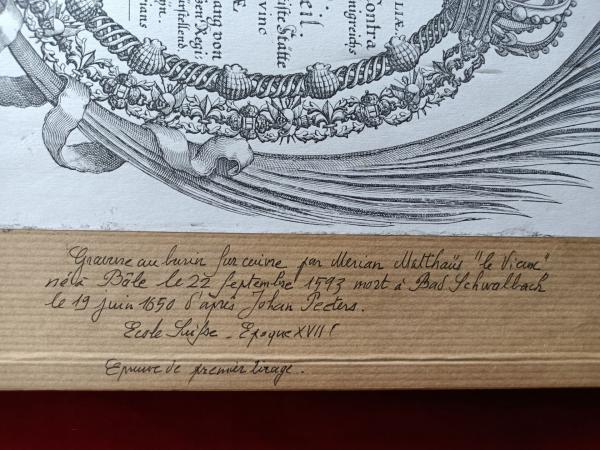 LLÆ
Contra
nigreichs
eil.
iste Stätte
vinc
Æ.
ang von
Regi
pit.
Gravure au burin sur cuivre par Merian Matthaüs "le Vieux"
né à Bâle le 22 septembre 1593 mort à Bad Schwalbach
le 19 juin 1650 d'après Johan Peeters.
Ecole Suisse - Epoque XVIIe
Epreuve de premier tirage.